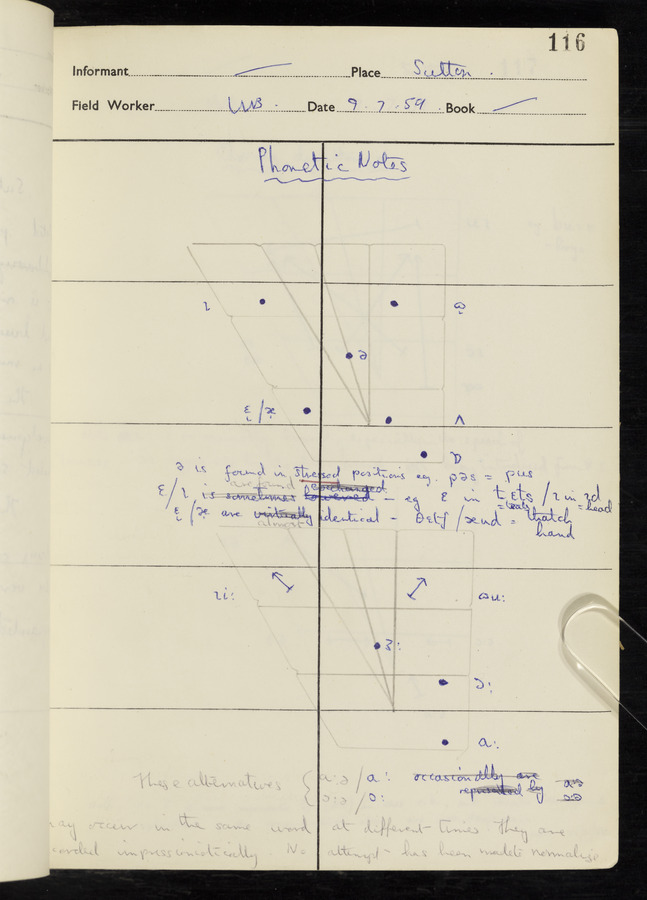 116
Informant Place Sutton.
Field Worker WB. Date 9.7.59. Book
Phonetic Notes
ɩ
ə
ɛ̞/æ ʌ
ɒ
ə is found in stressed positions eg. pəs = pus
are found exchanged
ɛ/ɩ is sometimes lowered – eg ɛ in tɛts / ɩ in ɩd
= teats = head
ɛ̞/æ are virtually identical – θɛtʃ/ænd = thatch
almost hand
ɩi: ɷu:
ɜ:
ɔ:
ɑ:
These alternatives { ɑ:ə / ɑ: occasionally are
ɔ:ə / ɔ: by
may occur in the same word at different times they are
recorded impressionistically. No attempt has been made to normalise